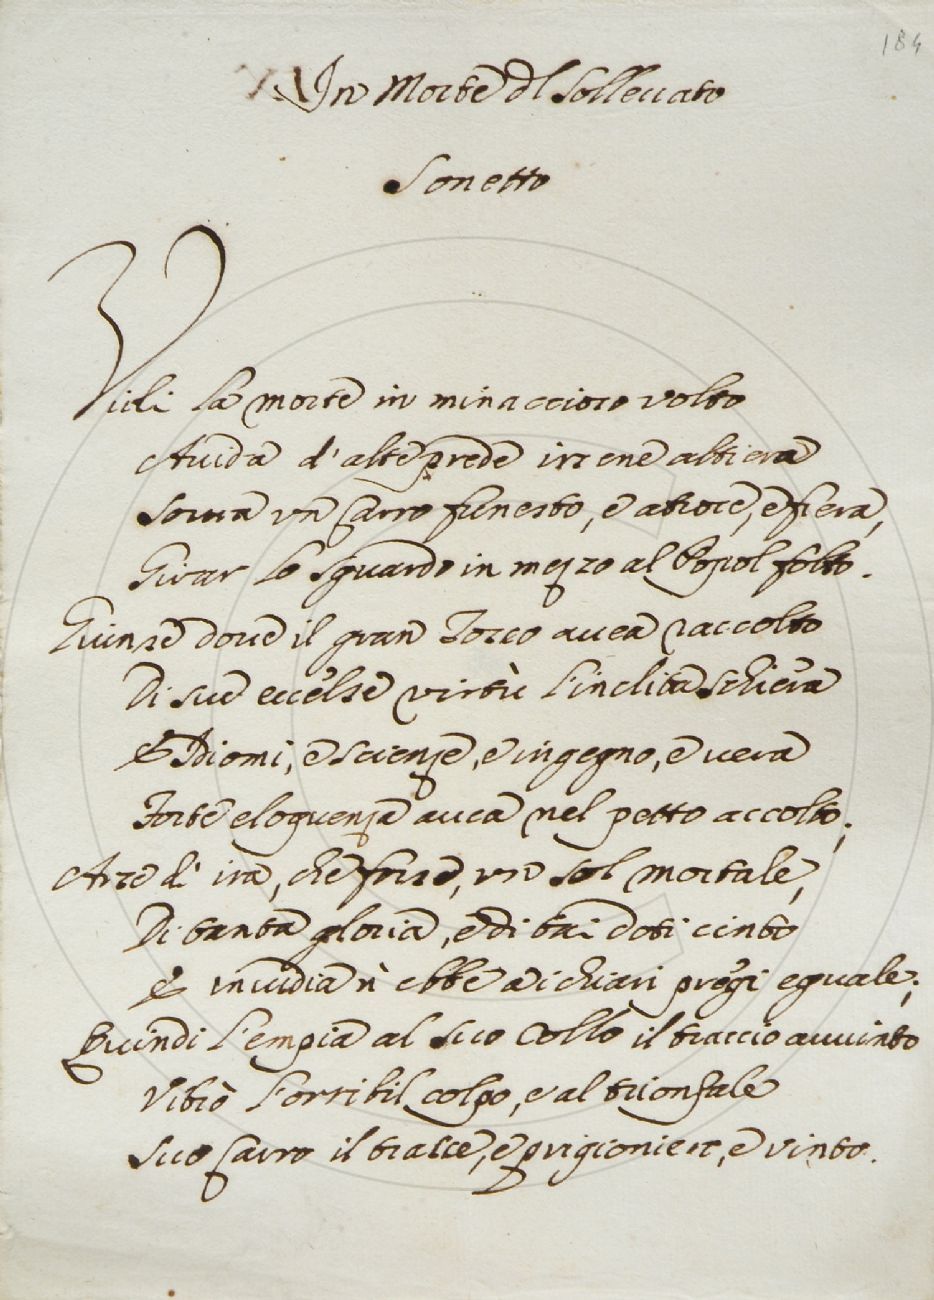 184
In Morte dl Sollevato
Sonetto
Viddi la morte in minaccioso volto
Avida d'alte prede irsene altiera
Sovra un Carro funesto, e atroce, e fiera,
Girar lo sguardo in mezzo al Popol folto.
Giunse dove il gran Tosco avea raccolto
Di sue eccelse virtù l'inclita schiera
E Idiomi, e scienze, e ingegno, e vera
Forte eloquenza avea nel petto accolto;
Arse di ira, che fosse, un sol mortale,
Di tanta gloria, e di tai doti cinto
E invidia n'ebbe a i chiari pregi eguale;
Quindi l'empia al suo Collo il braccio avvinto
Vibrò l'orribil colpo, e al trionfale
Suo Carro il trasse, e prigioniero, e vinto.